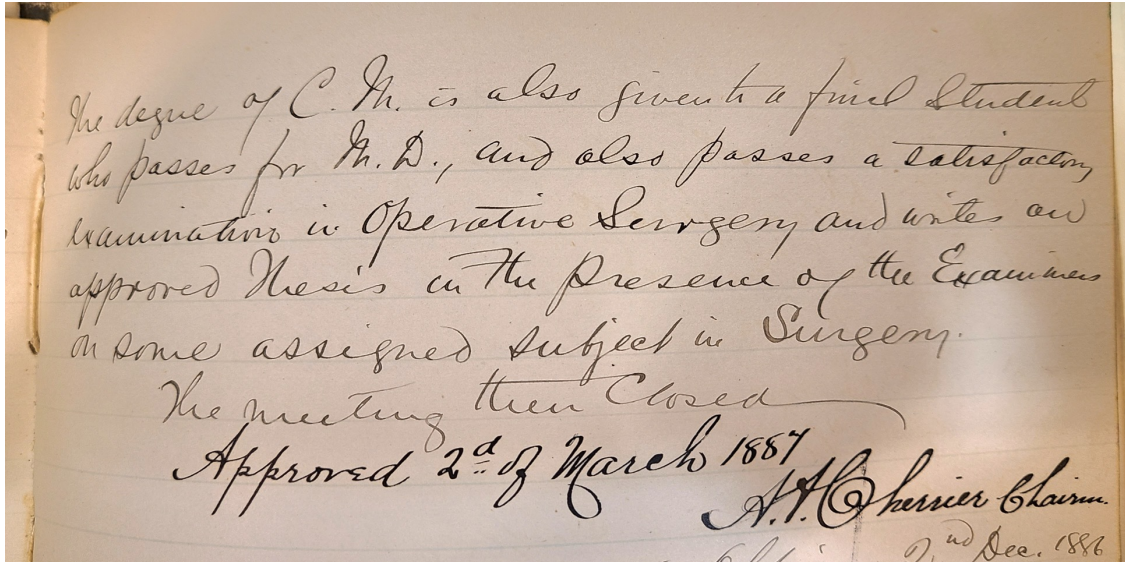 The degree of C. M. is also given to a final Student
who passes for M. D., and also passes a satisfactory
examination in Operative Surgery and writes an
approved Thesis in the presence of the Examiners
on some assigned subject in Surgery.
The meeting then Closed
Approved 2d of March 1887
A. H. Cherrier Chairm.
2nd Dec. 1886